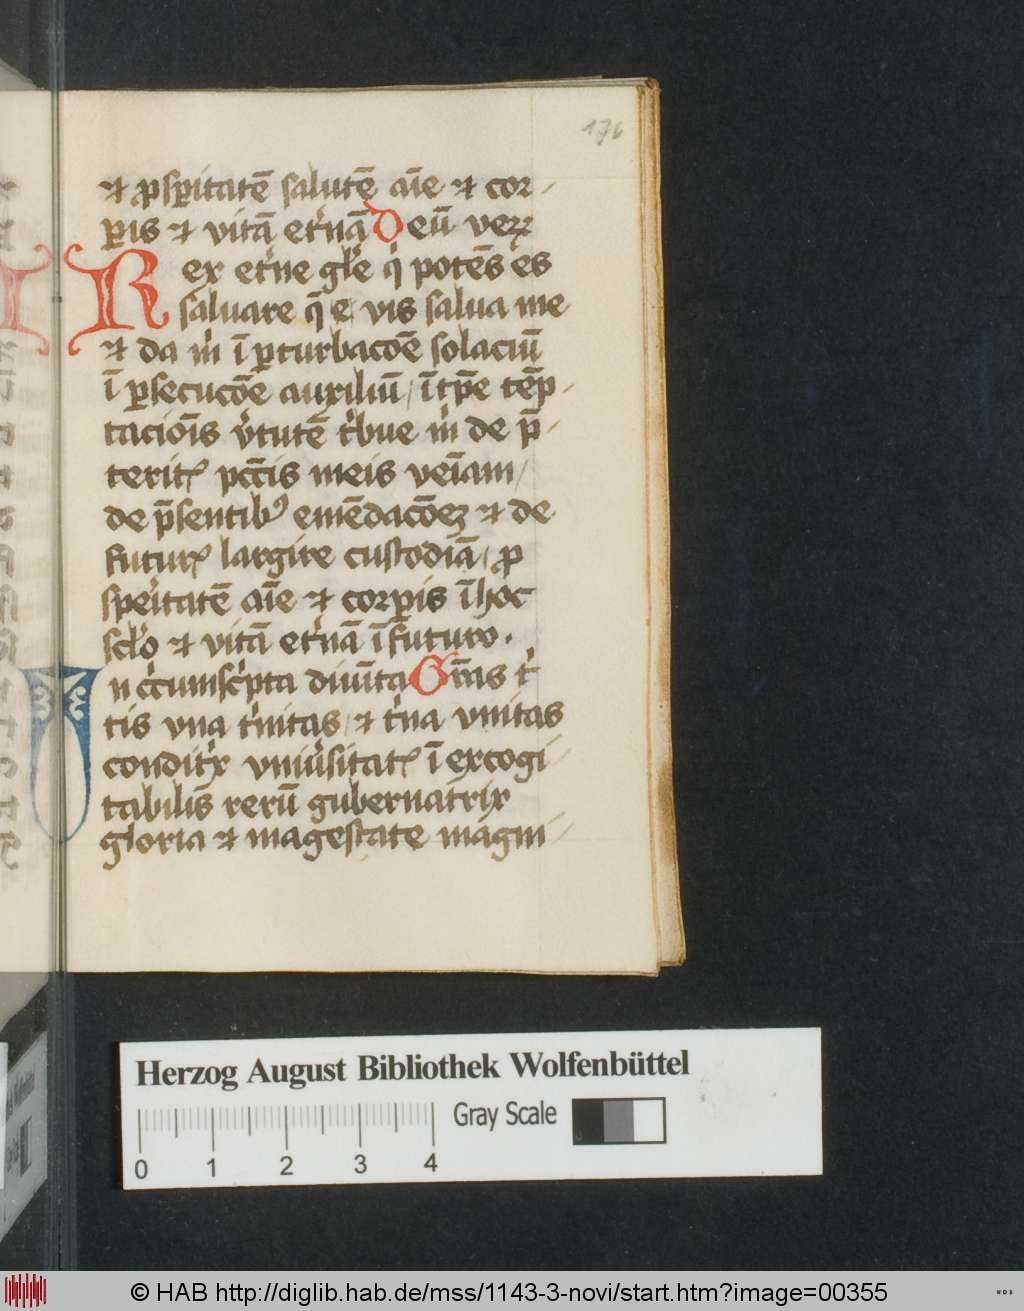 176
et ꝓsꝑitatē salutē aīe et cor-
ꝑis et vitā et'nā Deū veꝝ
Rex et'ne gl'e q̇ potēs es
saluare q̄ e vis salua me
et da m̍ ī ꝑturbacōe solaciū
ī ꝑsecucōe auxiliū / ī tp̄e tēp-
tacioīs v̍tutē t̍bue m̍ de p̄-
terit pccīs meis veīam /
de p̄sentibꝰ emēdacōeꝫ et de
futur largire custodiā / ꝓ
speitatē aīe et corꝑis ī hoc
sclo et vitā et'nā ī futuro .
Un cc̍umsc̍pta diuīta Gr̄as t̍
tis vna t̍nitas / et t̍na vnitas
condit̍x vniu̍sitat ī excogi-
tabilis rerū gubernatrix
gloria et magestate magni-
Herzog August Bibliothek Wolfenbüttel
Gray Scale
0 1 2 3 4
© HAB http://diglib.hab.de/mss/1143-3-novi/start.htm?image=00355